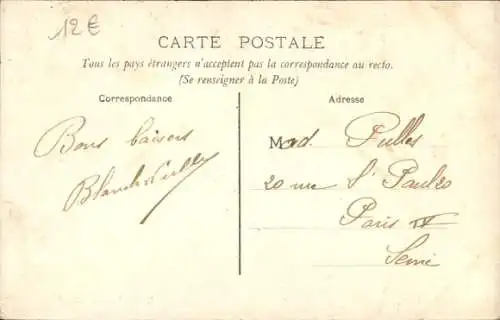 12€
CARTE POSTALE
Tous les pays étrangers n'acceptent pas la correspondance au recto.
(Se renseigner à la Poste)
Correspondance
Adresse
Bons baisers
Blanche
Mad. Pulles
20 rue St Paul 20
Paris IV
Seine